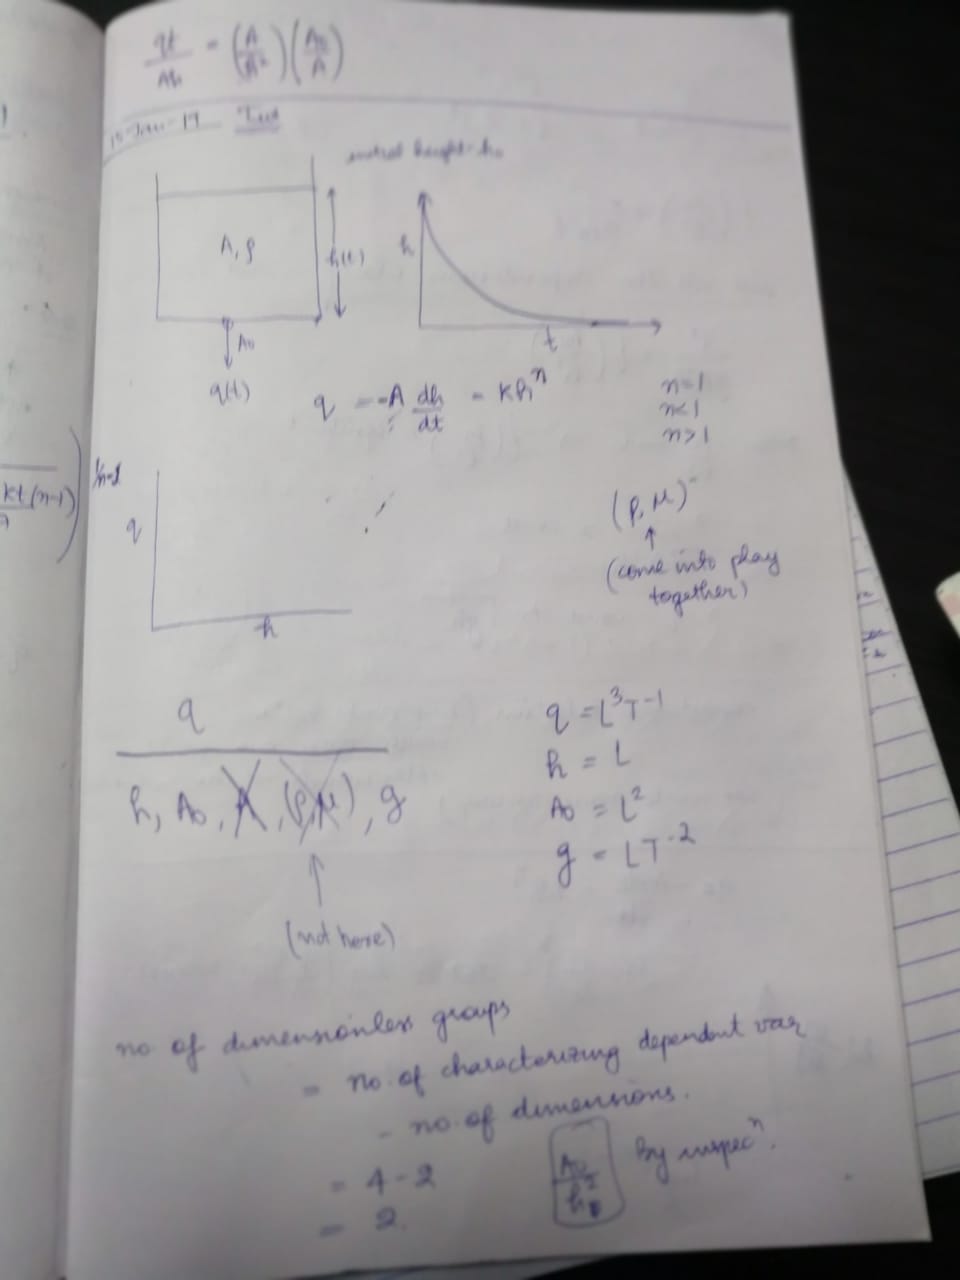 qt/Ah = (A/A²)(A₀/A)
15-Jan-19 Tut
initial height = h₀
A, ρ
h(t)
A₀
q(t)
h
t
q = -A dh/dt = khⁿ
n=1
n<1
n>1
kt(n-1)
1/n-1
q
h
(ρ, μ)
(come into play
together)
q
h, A₀, A, (ρ, μ), g
(not here)
q = L³T⁻¹
h = L
A₀ = L²
g = LT⁻²
no of dimensionless groups
= no. of characterizing dependent var
- no. of dimensions.
= 4 - 2
= 2.
A₀/h² By inspecⁿ.